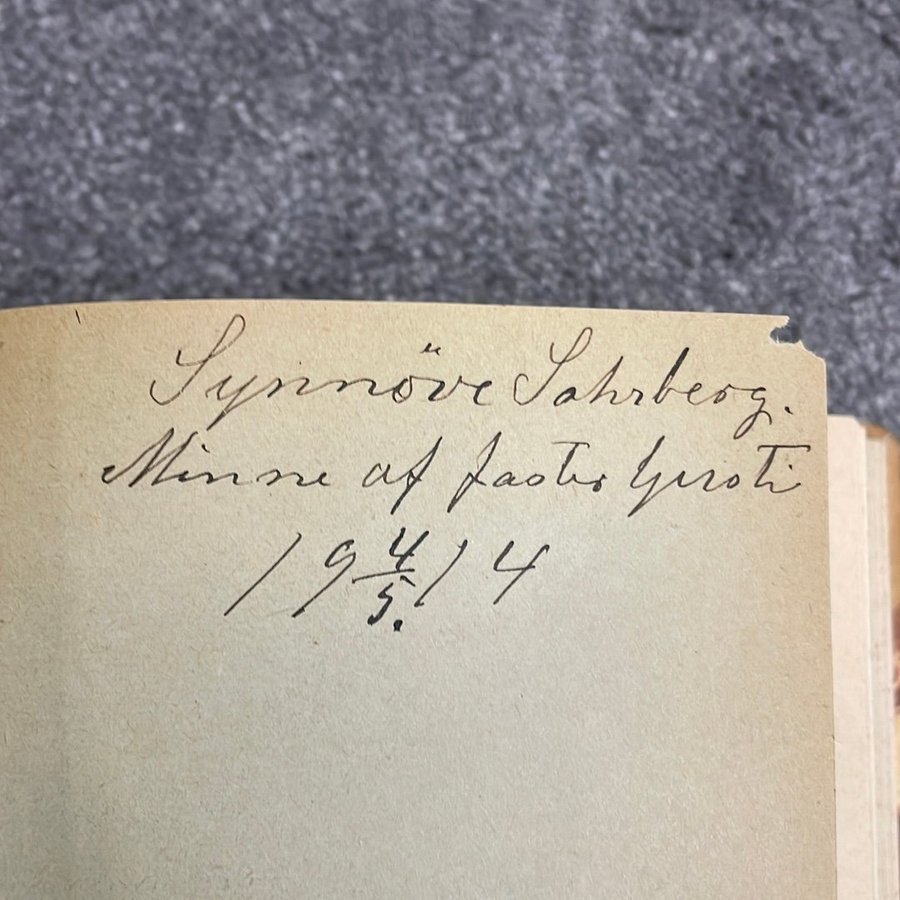 Synnöve Sahrberg.
Minne af faster
19 4/5. 14